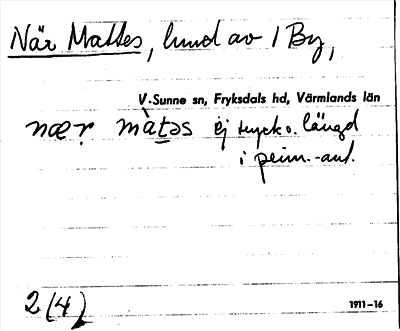 När Mattes, lund av 1 By,
V. Sunne sn, Fryksdals hd, Värmlands län
næṛ màtəs ej tryck o. längd
i prim.-ant.
2 (4)
1911-16